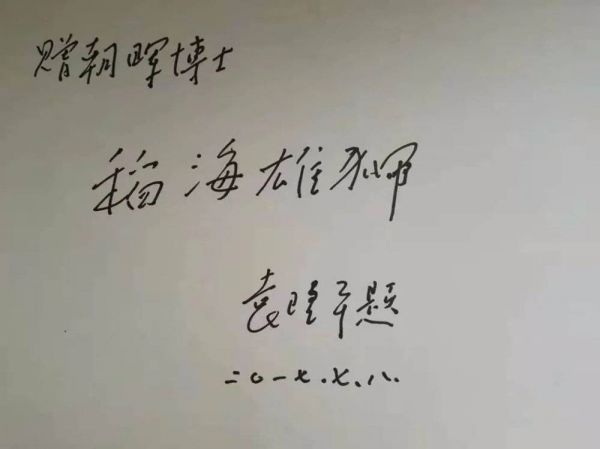 赠朝晖博士
稻海雄狮
袁隆平题
二〇一七.七.八.